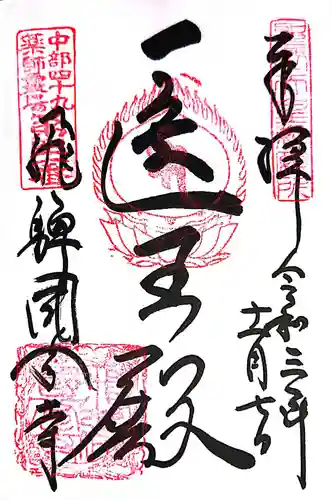 奉拝
令和三年
十一月七日
医王殿
中部四十九
薬師霊場
飛騨国分寺